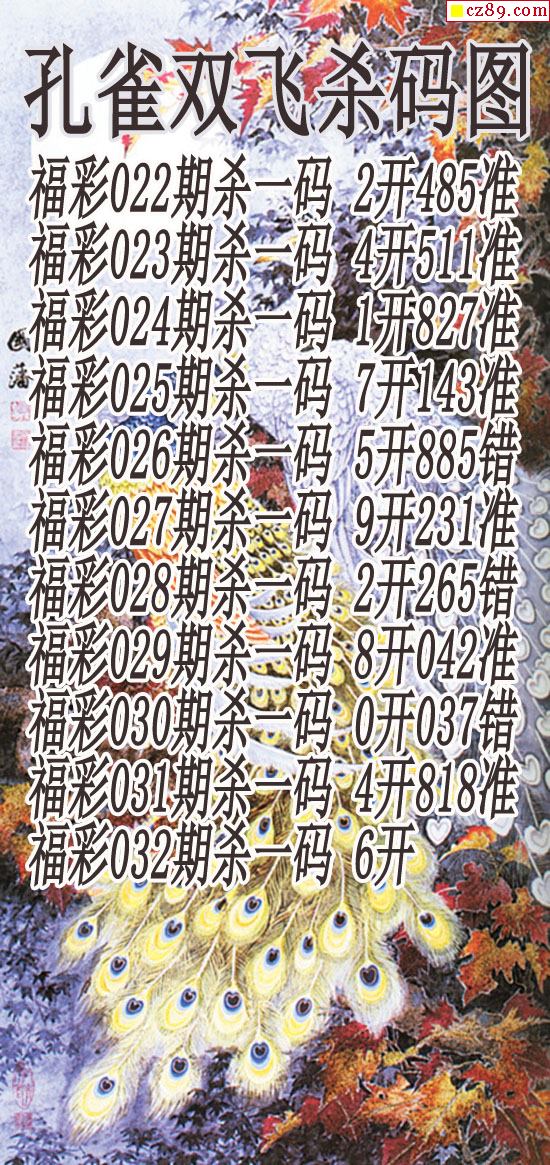 cz89.com
孔雀双飞杀码图
福彩022期杀一码 2开485准
福彩023期杀一码 4开511准
福彩024期杀一码 1开827准
福彩025期杀一码 7开143准
福彩026期杀一码 5开885错
福彩027期杀一码 9开231准
福彩028期杀一码 2开265错
福彩029期杀一码 8开042准
福彩030期杀一码 0开037错
福彩031期杀一码 4开818准
福彩032期杀一码 6开